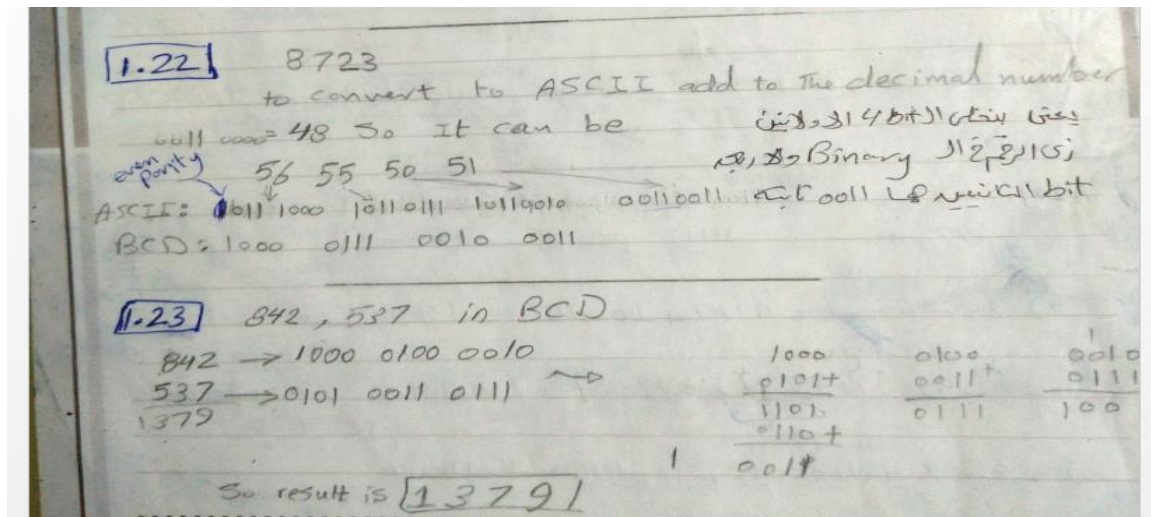 1.22 8723
to convert to ASCII add to the decimal number
0011 0000 = 48 So It can be يعنى بنخلى ال 4 bit الاولانين
even parity 56 55 50 51 زى الرقم ال Binary
ASCII: 10111000 10110111 10110010 00110011 bit التانيين 0011 ثابته
BCD: 1000 0111 0010 0011
1.23 842, 537 in BCD
842 → 1000 0100 0010 1000 0100 0010
537 → 0101 0011 0111 0101+ 0011+ 0111
1379 1101 0111 100
0110+
1 0011
So result is 1379